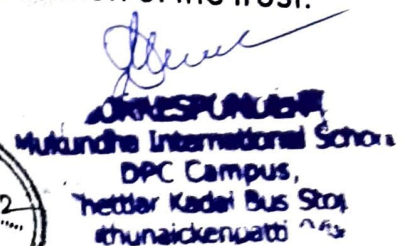 of the trust.
CORRESPONDENT
Mukundha International School
DPC Campus,
hettiar Kadai Bus Stop
thunaickenpatti
2